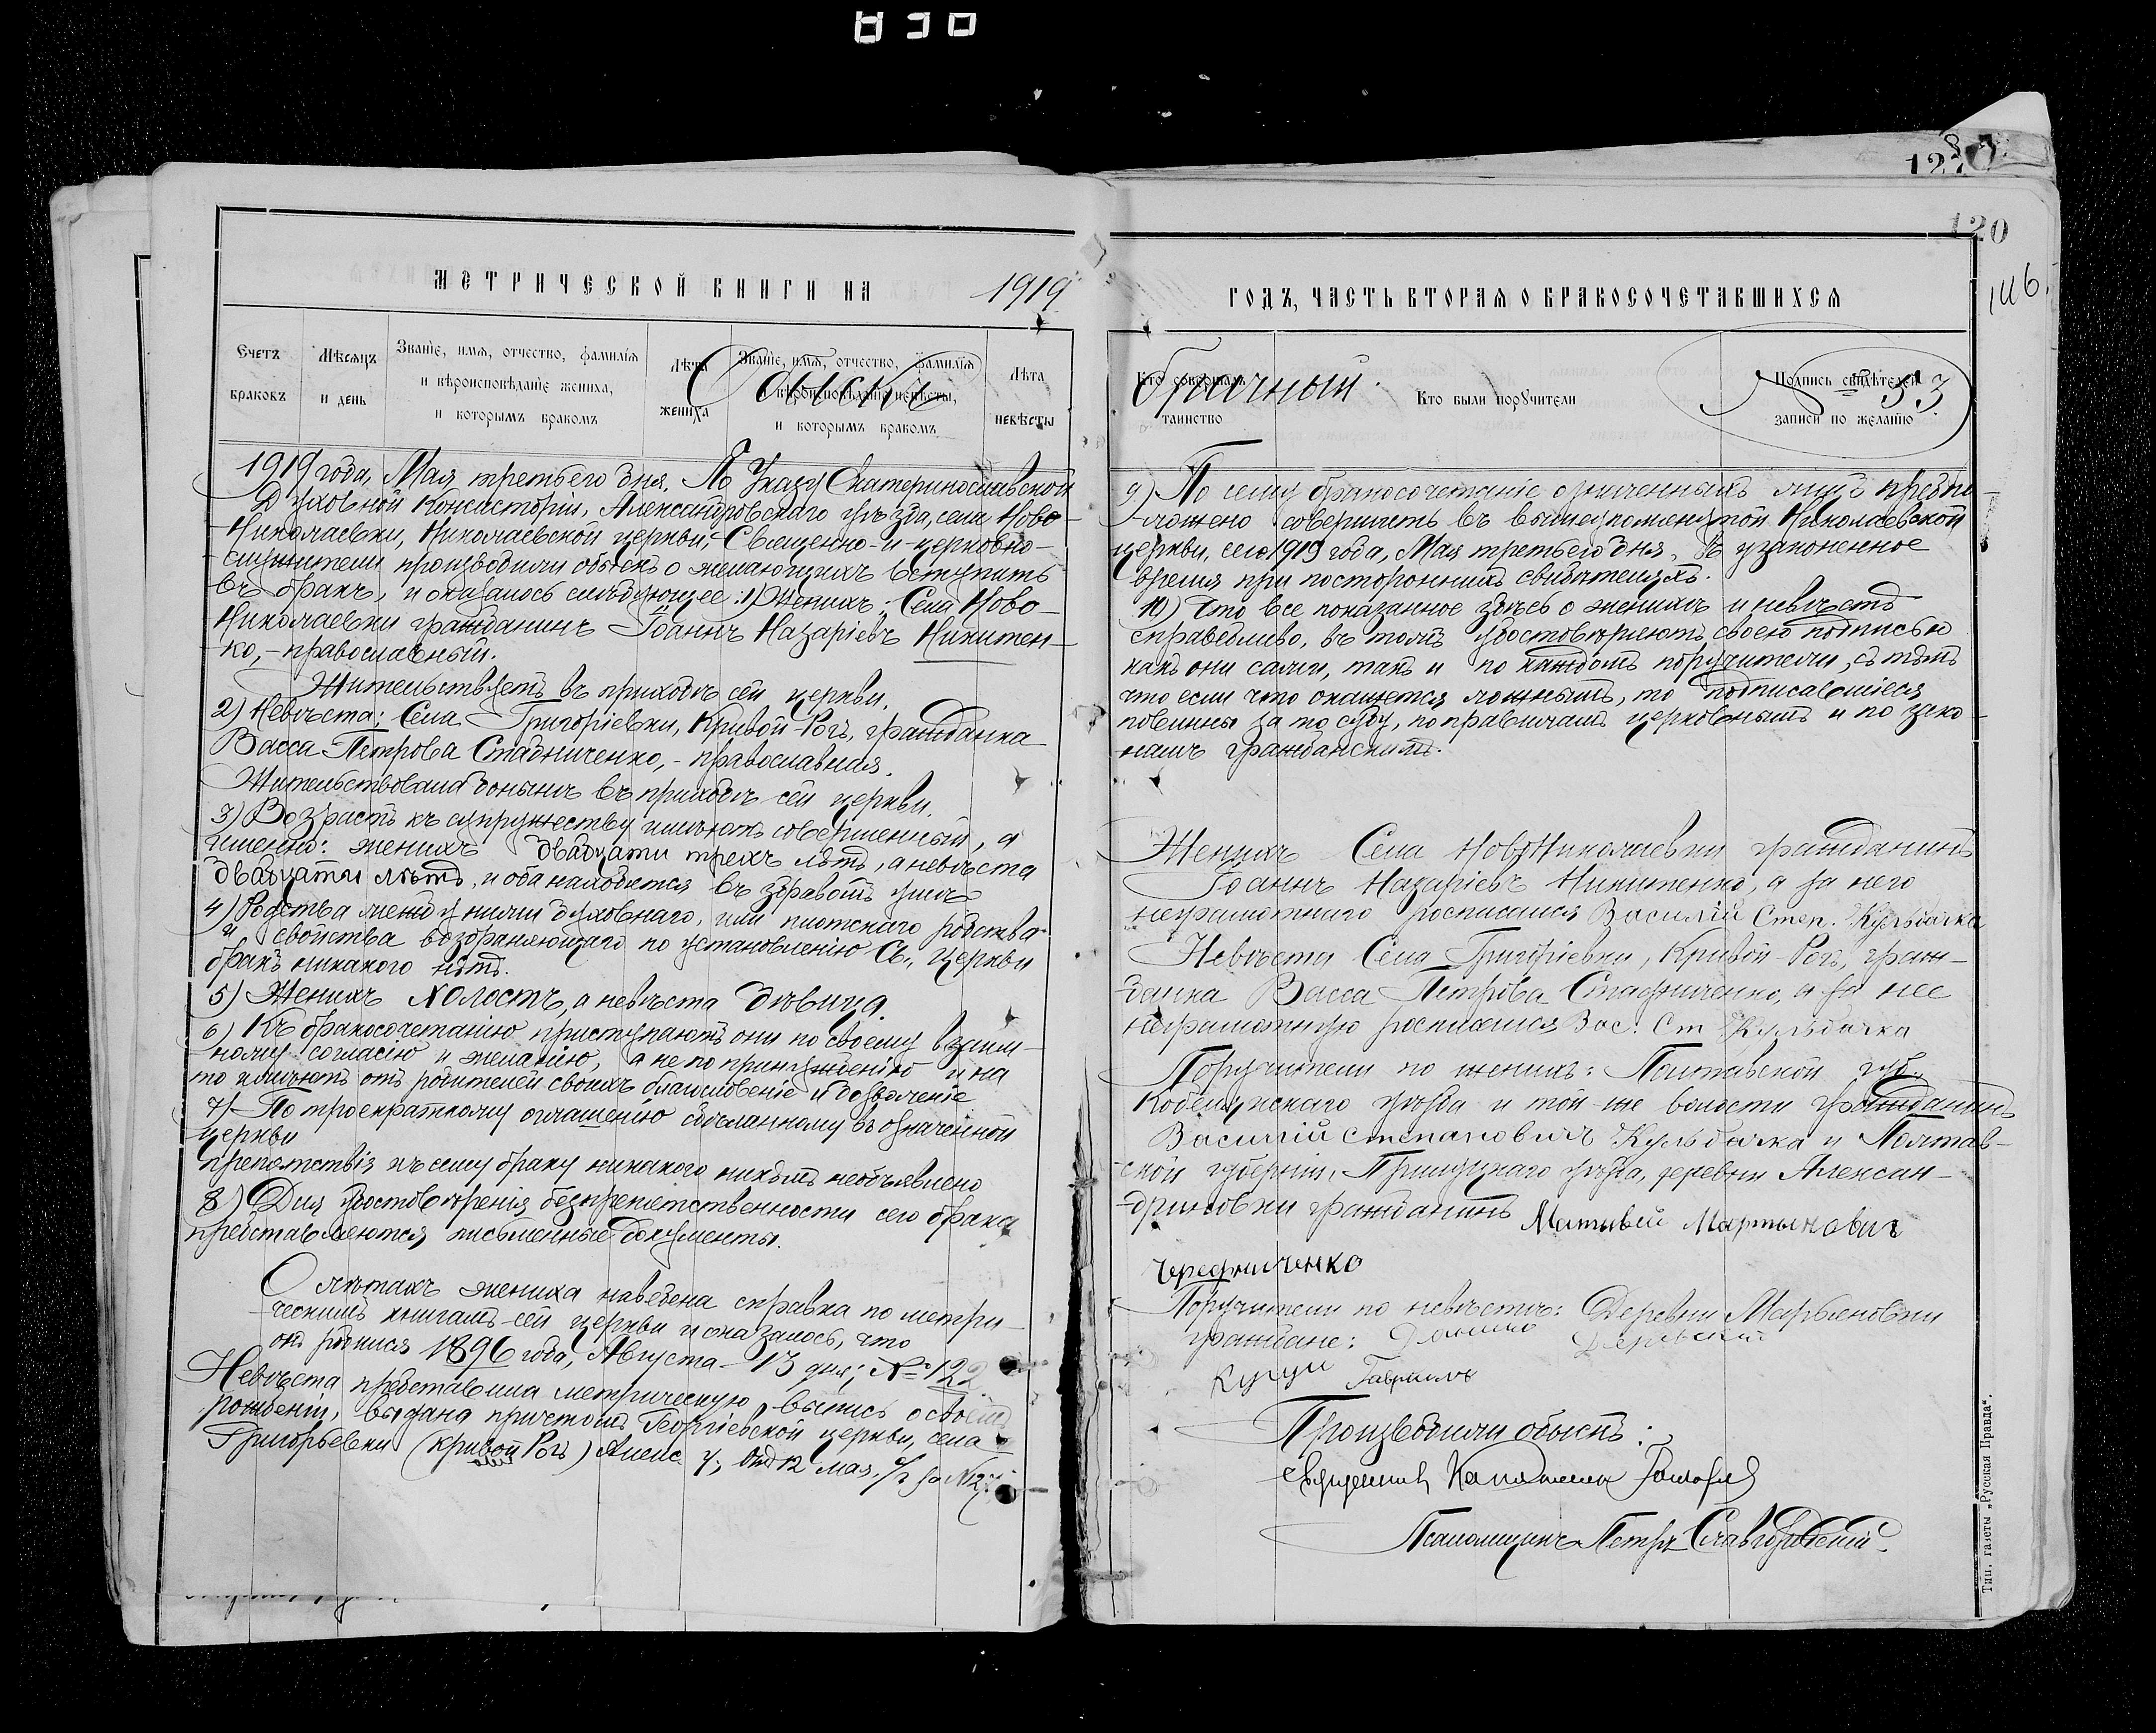 120
146.
МЕТРИЧЕСКОЙ КНИГИ НА 1919
Счетъ браковъ
Мѣсяцъ и день
Званіе, имя, отчество, фамилія и вѣроисповѣданіе жениха, и которымъ бракомъ
Лѣта жениха
Званіе, имя, отчество, фамилія и вѣроисповѣданіе невѣсты, и которымъ бракомъ
Лѣта невѣсты
Обыскъ
1919 года, Мая третьего дня. По Указу Екатеринославской
Духовной Консисторіи, Александровскаго уѣзда, села Ново-
Николаевки, Николаевской церкви, Священно-и-церковно-
служители производили обыскъ о желающихъ вступить
въ бракъ, и оказалось слѣдующее: 1) Женихъ: Села Ново-
Николаевки гражданинъ Іоаннъ Назаріевъ Никитен-
ко, - православный.
Жительствуетъ въ приходѣ сей церкви.
2) Невѣста: Села Григоріевки, Кривой-Рогъ, гражданка
Васса Петрова Стадниченко, - православная.
Жительствовала донынѣ въ приходѣ сей церкви.
3) Возрастъ къ супружеству имѣютъ совершенный, а
именно: женихъ двадцати трехъ лѣтъ, а невѣста
двадцати лѣтъ, и оба находятся въ здравомъ умѣ
4) Родства между ними духовнаго, или плотскаго родства
и свойства возбраняющаго по установленію Св. Церкви
бракъ никакого нѣтъ.
5) Женихъ холостъ, а невѣста дѣвица.
6) Къ бракосочетанію приступаютъ они по своему взаим-
ному согласію и желанію, а не по принужденію и на
то имѣютъ отъ родителей своихъ благословеніе и дозволеніе
7) По троекратному оглашенію сдѣланному въ означенной
церкви
препятствія къ сему браку никакого никѣмъ необъявлено
8) Для удостовѣренія безпрепятственности сего брака
представляются письменные документы.
О лѣтахъ жениха наведена справка по метри-
ческимъ книгамъ сей церкви и оказалось, что
онъ родился 1896 года, Августа 13 дня; № 122
Невѣста представила метрическую выпись о своемъ
рожденіи, выдана причтомъ Георгіевской церкви, села
Григорьевки (Кривой Рогъ) Алекс. у., 12 мая, с/г за №
ГОДЪ, ЧАСТЬ ВТОРАЯ О БРАКОСОЧЕТАВШИХСЯ
Кто совершалъ таинство
Кто были поручители
Подпись свидѣтелей записи по желанію
брачный.
53
9) По сему бракосочетаніе означенныхъ лицъ предпо-
ложено совершить въ вышеупомянутой Николаевской
церкви, сего 1919 года, Мая третьего дня. Въ узаконенное
время при постороннихъ свидѣтеляхъ.
10) Что все показанное здѣсь о женихѣ и невѣстѣ
справедливо, въ томъ удостовѣряютъ своею подписью
какъ они сами, такъ и по каждомъ поручители, съ тѣмъ
что если что окажется ложнымъ, то подписавшіеся
повинны за то суду, по правиламъ церковнымъ и по зако-
намъ гражданскимъ.
Женихъ Села Ново Николаевки гражданинъ
Іоаннъ Назаріевъ Никитенко, а за него
неграмотнаго росписался Василій Степ. Кульбачка
Невѣста Села Григоріевки, Кривой-Рогъ, граж-
данка Васса Петрова Стадниченко, а за нее
неграмотную росписался Вас. Ст Кульбачка
Поручители по женихѣ: Полтавской губ.
Кобелякскаго уѣзда и той-же волости гражданинъ
Василій Степановичъ Кульбачка и Полтав-
ской губерніи, Прилуцкаго уѣзда, деревни Алексан-
дриновки гражданинъ Матвей Мартыновичъ
Чередниченко
Поручители по невѣстѣ: Деревни Марьяновки
граждане: Данило
Гавриилъ
Производили обыскъ:
Священникъ
Псаломщикъ Петръ Славгородскій.
Тип. газеты „Русская Правда“.